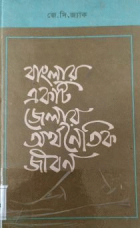 জে.সি.জ্যাক
বাংলার
একটি
জেলার
অর্থনৈতিক
জীবন